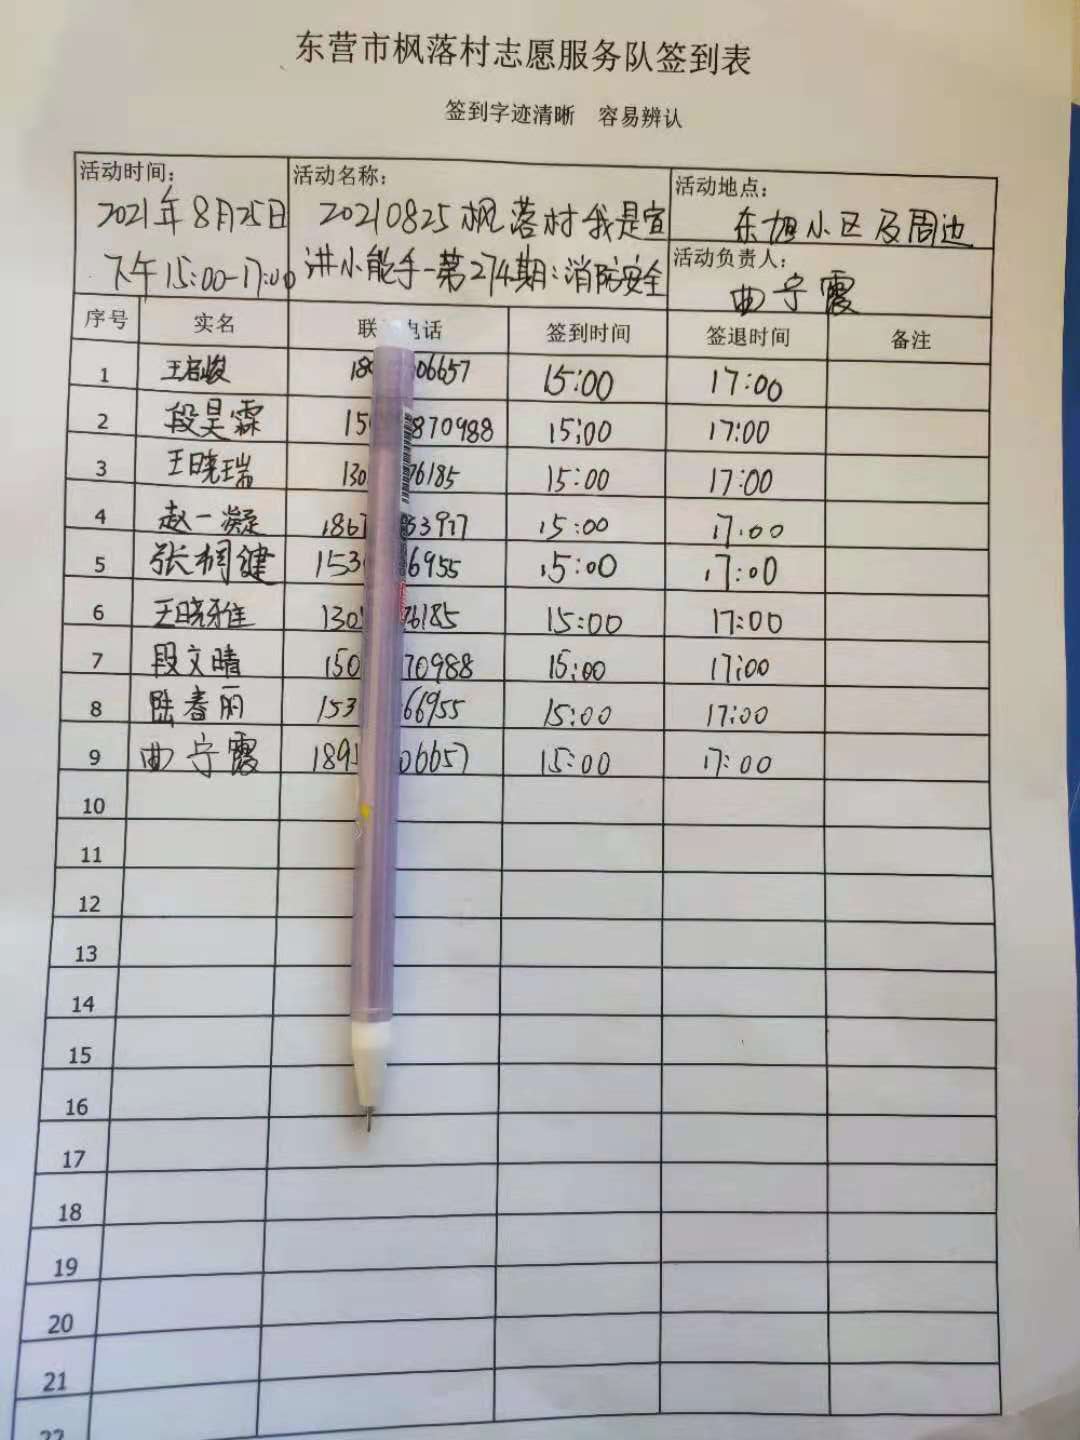 东营市枫落村志愿服务队签到表
签到字迹清晰 容易辨认
活动时间： 活动名称： 活动地点：
2021年8月25日 20210825枫落村我是宣 东旭小区及周边
下午15:00-17:00 讲小能手-第274期：消防安全 活动负责人：
曲宁霞
序号 实名 联 电话 签到时间 签退时间 备注
1 王启峻 18 06657 15:00 17:00
2 段昊霖 15 870988 15:00 17:00
3 王晓瑞 130 76185 15:00 17:00
4 赵一凝 1867 53917 15:00 17:00
5 张桐健 153 6955 15:00 17:00
6 王晓雅 130 76185 15:00 17:00
7 段文晴 150 70988 15:00 17:00
8 陆春丽 153 66955 15:00 17:00
9 曲宁霞 1895 06657 15:00 17:00
10
11
12
13
14
15
16
17
18
19
20
21
22